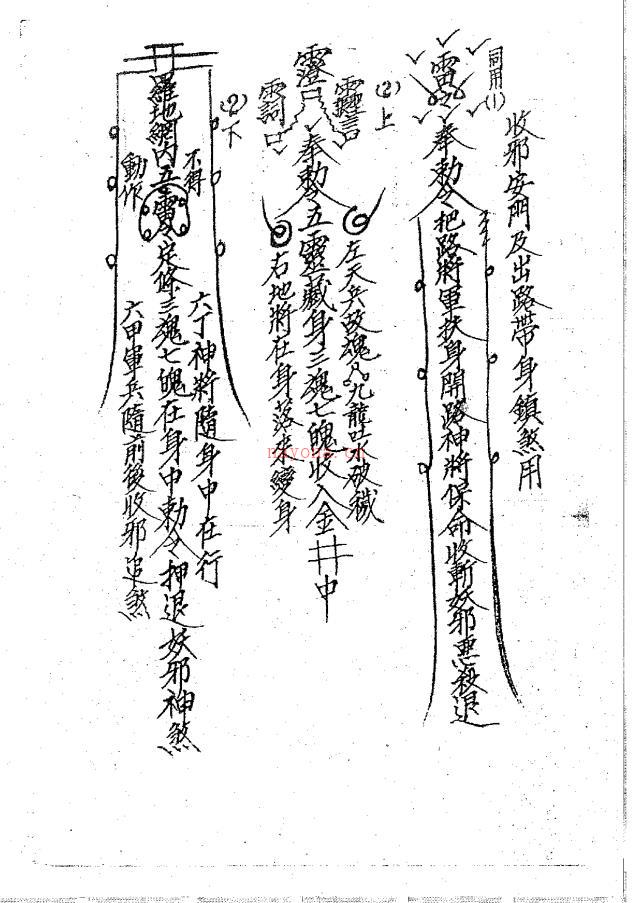 收邪安門及出路帶身鎖煞用
同用(1)
奉勅令把路將軍扶身開路神將保命收斬妖邪惡殺退
(2)上
奉勅令五靈藏身三魂七魄收入金井中
左天兵 魂 九龍吐水破穢
右地將在身落來變身
(2)下
羅地網內五雷 定條三魂七魄在身中勅令押退妖邪神煞
不得
動作
六丁神將隨身中在行
六甲軍兵隨前後收邪追煞